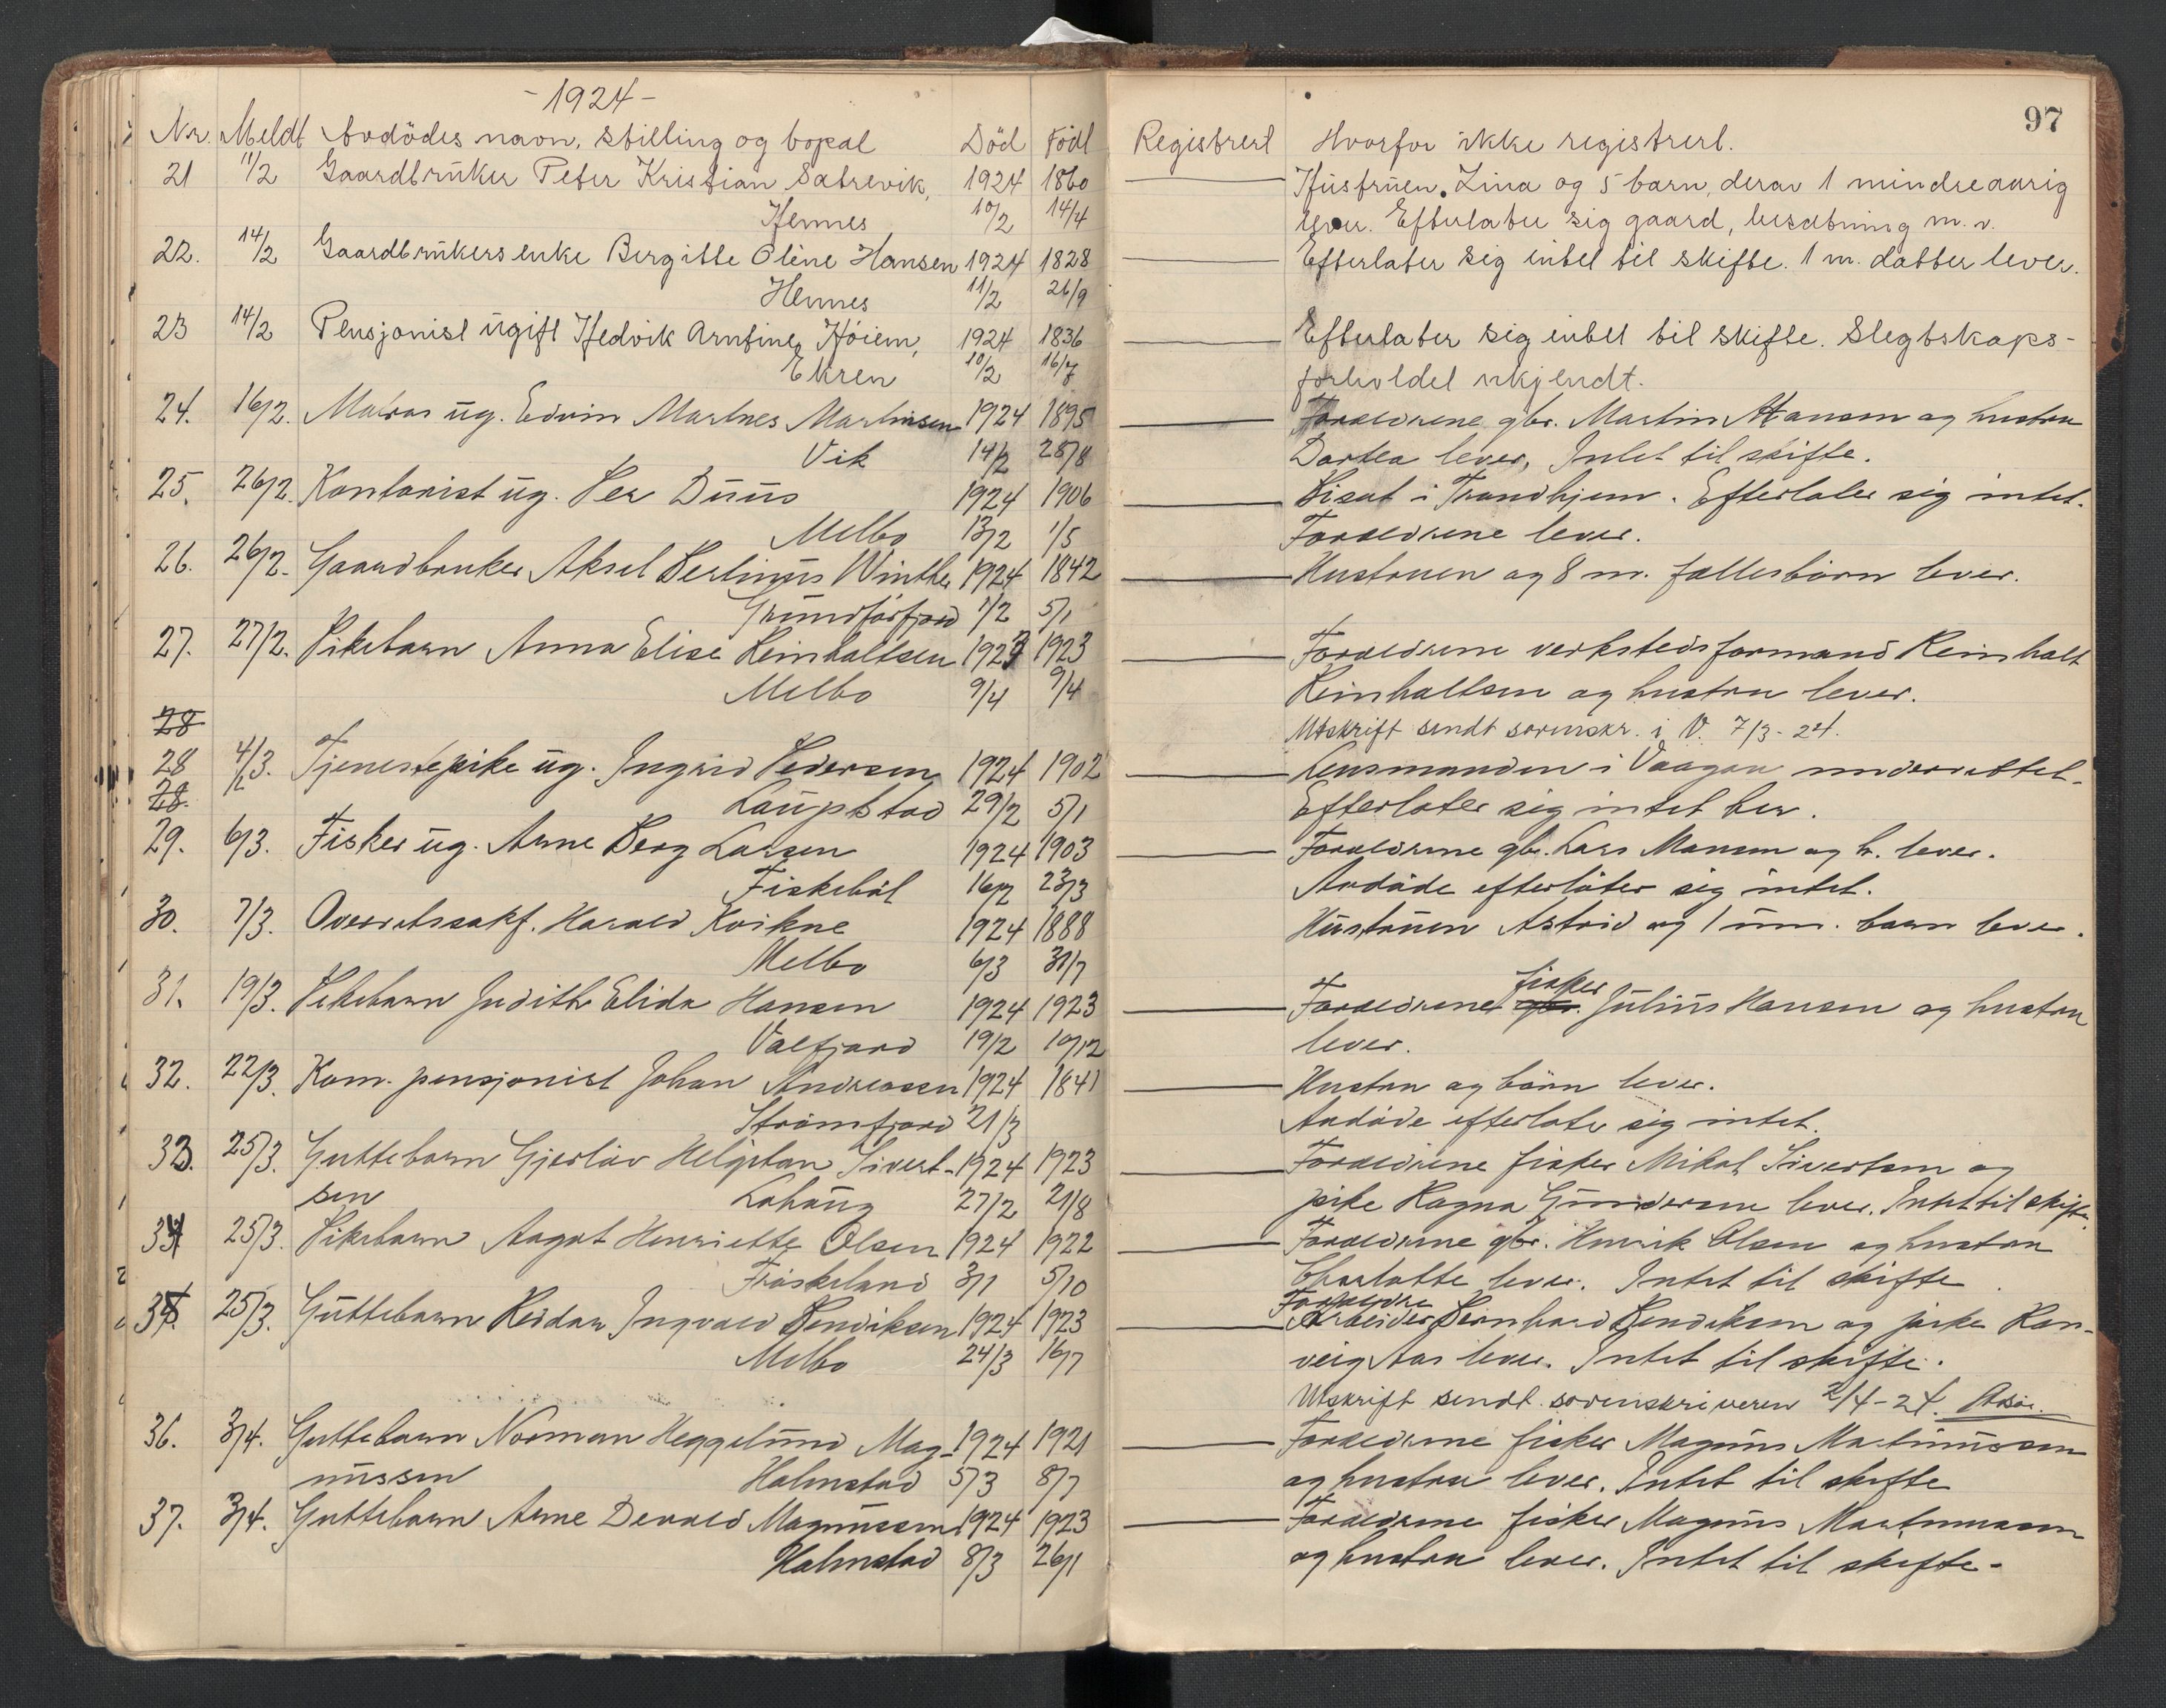 - 1924 -
97
Nr. Meldt Avdödes navn, stilling og bopæl Död Född Registrert Hvorfor ikke registrert.
21 11/2 Gaardbruker Peter Kristian Sætrevik, 1924 1860 Hustruen Lina og 5 barn, derav 1 mindreaarig
Hennes 10/2 14/4 lever. Efterlater sig gaard, besætning m.v.
22. 14/2 Gaardbrukers enke Bergitte Oline Hansen 1924 1828 Efterlater sig intet til skifte. 1 m. datter lever.
Hennes 11/2 26/9
23 14/2 Pensjonist ugift Hedvik Arnfine Höiem, 1924 1836 Efterlater sig intet til skifte. Slegtskaps-
Ekren 10/2 16/7 forholdet ukjendt.
24. 16/2. Matros ug. Edvin Martnes Martinsen 1924 1895 Forældrene gbr. Martin Hansen og hustru
Vik 14/2 28/8 Dortea lever, Intet til skifte.
25. 26/2. Kontorist ug. Per Duus 1924 1906 Bisat i Trondhjem. Efterlater sig intet.
Melbo 13/2 1/5 Forældrene lever.
26. 26/2. Gaardbruker Aksel Berlinus Winther 1924 1842 Hustruen og 8 m. fællesbörn lever.
Grundförfjord 1/2 5/1
27. 27/2. Pikebarn Anna Elise Reinholtsen 1923 1923 Forældrene verkstedsformand Reinholt
Melbo 9/4 9/4 Reinholtsen og hustru lever.
28 Utskrift sendt sorenskr. i V. 7/3-24.
28 4/3. Tjenestepike ug. Ingrid Pedersen 1924 1902 Lensmanden i Vaagan underrettet.
28. Laupstad 29/2 5/1 Efterlater sig intet her.
29. 6/3. Fisker ug. Arne Berg Larsen 1924 1903 Forældrene gbr. Lars Monsen og h. lever.
Fiskeböl 16/2 23/3 Avdöde efterlater sig intet.
30. 7/3. Overretssakf. Harald Kvikne 1924 1888 Hustruen Astrid og 1 um. barn lever.
Melbo 6/3 31/7
31. 19/3. Pikebarn Judith Elida Hansen 1924 1923 Forældrene gbr. fisker Julius Hansen og hustru
Valfjord 19/2 10/12 lever.
32. 22/3. Kom. pensjonist Johan Andreassen 1924 1841 Hustru og börn lever.
Strömfjord 21/3 Avdöde efterlater sig intet.
33. 25/3. Guttebarn Gjerlöv Helgstan Sivert- 1924 1923 Forældrene fisker Mikal Sivertsen og
sen Lahaug 27/2 21/8 pike Ragna Gundersen lever. Intet til skifte.
34 25/3. Pikebarn Aagot Henriette Olsen 1924 1922 Forældrene gbr. Henrik Olsen og hustru
Fröskeland 3/1 5/10 Charlotte lever. Intet til skifte
35. 25/3. Guttebarn Reidar Ingvald Bendiksen 1924 1923 Forældre Arbeider Bernhard Bendiksen og pike Ran-
Melbo 24/3 16/7 veig Aas lever. Intet til skifte.
Utskrift sendt sorenskriveren 2/4-24.
36. 3/4. Guttebarn Norman Heggelund Mag- 1924 1921 Forældrene fisker Magnus Martinussen
nussen Holmstad 5/3 8/7 og hustru lever. Intet til skifte
37. 3/4. Guttebarn Arne Devold Magnussen 1924 1923 Forældrene fisker Magnus Martinussen
Holmstad 8/3 26/1 og hustru lever. Intet til skifte.